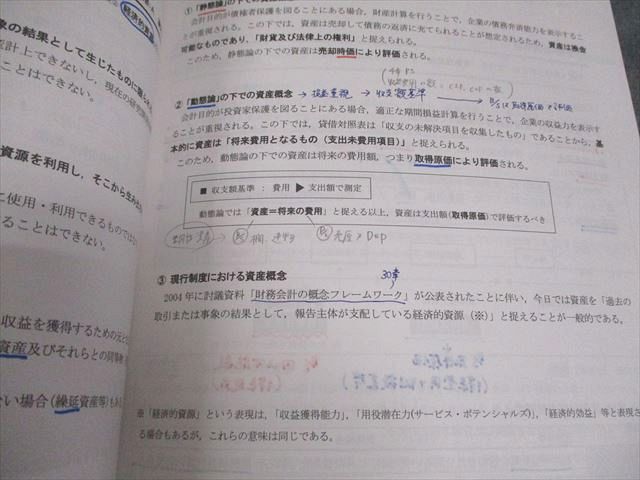 経済的資源
象の結果として生じたものに限られ
計上できないし、現在の研究開
ことはできない。
資源を利用し、そこから生み出
に使用・利用できるものでは
ることはできない。
収益を獲得するための元と
資産及びそれらとの同等物
ない場合(繰延資産等)もある
① 「静態論」の下での資産概念
会計目的が債権者保護を図ることにある場合、財産計算を行うことで、企業の債務弁済能力を表示するこ
とが重視される。この下では、資産は売却して債務の返済に充てられることが想定されるため、資産は換金
可能なものであり、「財貨及び法律上の権利」と捉えられる。
このため、静態論の下での資産は売却時価により評価される。
② 「動態論」の下での資産概念 → 損益重視 → 収支額基準
会計目的が投資家保護を図ることにある場合、適正な期間損益計算を行うことで、企業の収益力を表示す
ることが重視される。この下では、貸借対照表は「収支の未解決項目を収集したもの」であることから、基
本的に資産は「将来費用となるもの(支出未費用項目)」と捉えられる。
このため、動態論の下での資産は将来の費用額、つまり取得原価により評価される。
■ 収支額基準 : 費用 ▶ 支出額で測定
動態論では「資産=将来の費用」と捉える以上、資産は支出額(取得原価)で評価するべき
③ 現行制度における資産概念
30章
2004年に討議資料「財務会計の概念フレームワーク」が公表されたことに伴い、今日では資産を「過去の
取引または事象の結果として、報告主体が支配している経済的資源(※)」と捉えることが一般的である。
※「経済的資源」という表現は、「収益獲得能力」、「用役潜在力(サービス・ポテンシャルズ)」、「経済的効益」等と表現さ
る場合もあるが、これらの意味は同じである。